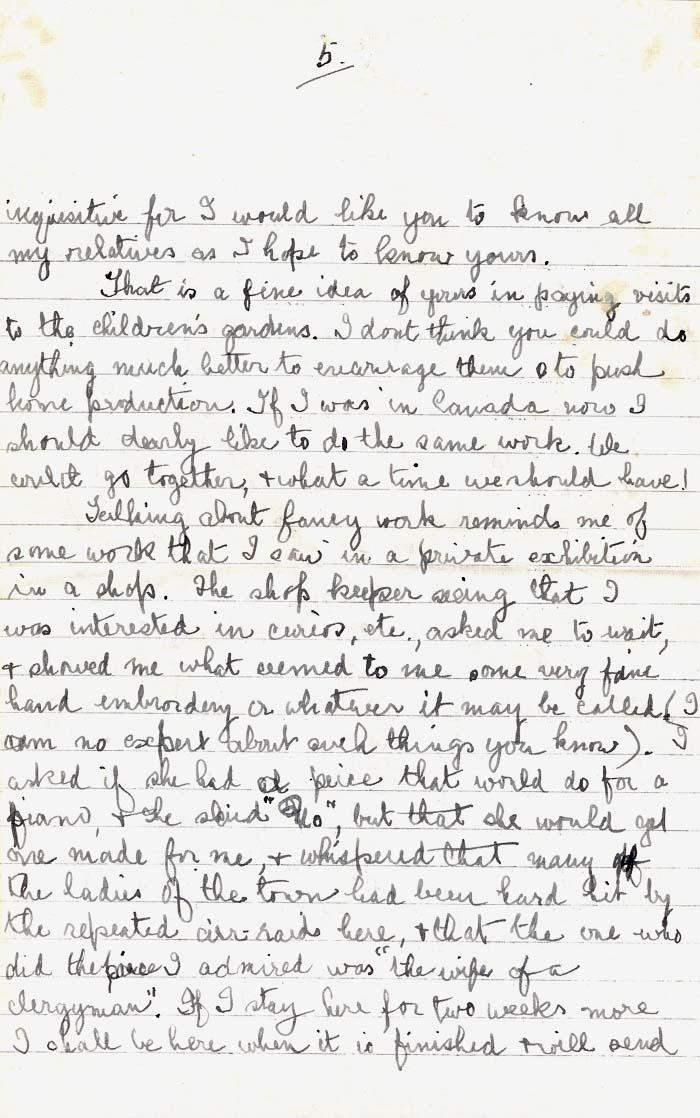 5.
inquisitive for I would like you to know all
my relatives as I hope to know yours.
That is a fine idea of yours in paying visits
to the children's gardens. I dont think you could do
anything much better to encourage them to push
home production. If I was in Canada now I
should dearly like to do the same work. We
could go together, & what a time we should have!
Talking about fancy work reminds me of
some work that I saw in a private exhibition
in a shop. The shop keeper seeing that I
was interested in curios, etc., asked me to wait,
& showed me what seemed to me some very fine
hand embroidery or whatever it may be called (I
am no expert about such things you know). I
asked if she had a peice that would do for a
piano, & she said "No", but that she would get
one made for me, & whispered that many of
the ladies of the town had been hard hit by
the repeated air-raids here, & that the one who
did the piece I admired was "the wife of a
clergyman". If I stay here for two weeks more
I shall be here when it is finished & will send